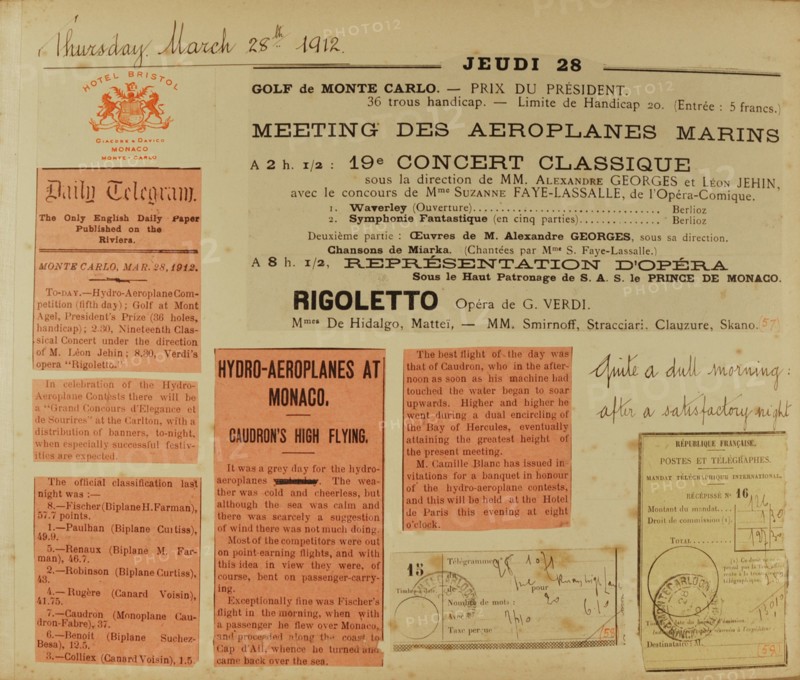 Thursday. March 28th 1912.
HOTEL BRISTOL
MONACO
MONTE-CARLO
JEUDI 28
GOLF de MONTE CARLO. — PRIX DU PRÉSIDENT.
36 trous handicap. — Limite de Handicap 20. (Entrée : 5 francs.)
MEETING DES AEROPLANES MARINS
A 2 h. 1/2 : 19e CONCERT CLASSIQUE
sous la direction de MM. ALEXANDRE GEORGES et LÉON JEHIN,
avec le concours de Mme SUZANNE FAYE-LASSALLE, de l'Opéra-Comique.
1. Waverley (Ouverture) Berlioz
2. Symphonie Fantastique (en cinq parties) Berlioz
Deuxième partie : Œuvres de M. Alexandre GEORGES, sous sa direction.
Chansons de Miarka. (Chantées par Mme S. Faye-Lassalle.)
A 8 h. 1/2, REPRÉSENTATION D'OPÉRA
Sous le Haut Patronage de S. A. S. le PRINCE DE MONACO.
RIGOLETTO Opéra de G. VERDI.
Mmes De Hidalgo, Matteï, — MM. Smirnoff, Stracciari, Clauzure, Skano.
(57)
Daily Telegram.
The Only English Daily Paper
Published on the
Riviera.
MONTE CARLO, MAR. 28, 1912.
TO-DAY.—Hydro-Aeroplane Com-
petition (fifth day); Golf at Mont
Agel, President's Prize (36 holes,
handicap); 2.30, Nineteenth Clas-
sical Concert under the direction
of M. Léon Jehin; 8.30, Verdi's
opera "Rigoletto."
In celebration of the Hydro-
Aeroplane Contests there will be
a "Grand Concours d'Elegance et
de Sourires" at the Carlton, with a
distribution of banners, to-night,
when especially successful festiv-
ities are expected.
The official classification last
night was :—
8.—Fischer (Biplane H. Farman),
57.7 points.
1.—Paulhan (Biplane Curtiss),
49.9.
5.—Renaux (Biplane M. Far-
man), 46.7.
2.—Robinson (Biplane Curtiss),
43.
4.—Rugère (Canard Voisin),
41.75.
7.—Caudron (Monoplane Cau-
dron-Fabre), 37.
6.—Benoit (Biplane Suchez-
Besa), 12.5.
3.—Colliex (Canard Voisin), 1.5
HYDRO-AEROPLANES AT
MONACO.
CAUDRON'S HIGH FLYING.
It was a grey day for the hydro-
aeroplanes yesterday. The wea-
ther was cold and cheerless, but
although the sea was calm and
there was scarcely a suggestion
of wind there was not much doing.
Most of the competitors were out
on point-earning flights, and with
this idea in view they were, of
course, bent on passenger-carry-
ing.
Exceptionally fine was Fischer's
flight in the morning, when with
a passenger he flew over Monaco,
and proceeded along the coast to
Cap d'Ail, whence he turned and
came back over the sea.
The best flight of the day was
that of Caudron, who in the after-
noon as soon as his machine had
touched the water began to soar
upwards. Higher and higher he
went during a dual encircling of
the Bay of Hercules, eventually
attaining the greatest height of
the present meeting.
M. Camille Blanc has issued in-
vitations for a banquet in honour
of the hydro-aeroplane contests,
and this will be held at the Hotel
de Paris this evening at eight
o'clock.
Quite a dull morning :
after a satisfactory night
15
Télégramme
de pour
Nombre de mots : 20
Taxe perçue
RÉPUBLIQUE FRANÇAISE.
POSTES ET TÉLÉGRAPHES.
MANDAT TÉLÉGRAPHIQUE INTERNATIONAL.
RÉCÉPISSÉ N° 16
Montant du mandat
Droit de commission
TOTAL
MONTE CARLO
Destinataire : M.
PHOTO12